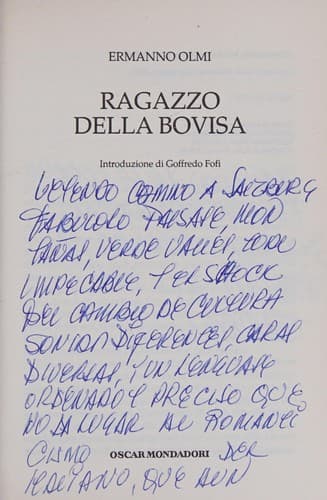 ERMANNO OLMI
RAGAZZO
DELLA BOVISA
Introduzione di Goffredo Fofi
CAMINO A SALZBURG
FABULOSO PAISAJE, MON
TAÑAS, VERDE VALLES, TODO
IMPECABLE, Y EL SHOCK
DEL CAMBIO DE CULTURA
SON LOS DIFERENCES, CARAS
DIVERSAS, Y UN LENGUAJE
ORDENADO Y PRECISO QUE
NO DA LUGAR AL ROMANTI
CISMO DEL
OSCAR MONDADORI
ITALIANO, QUE AUN